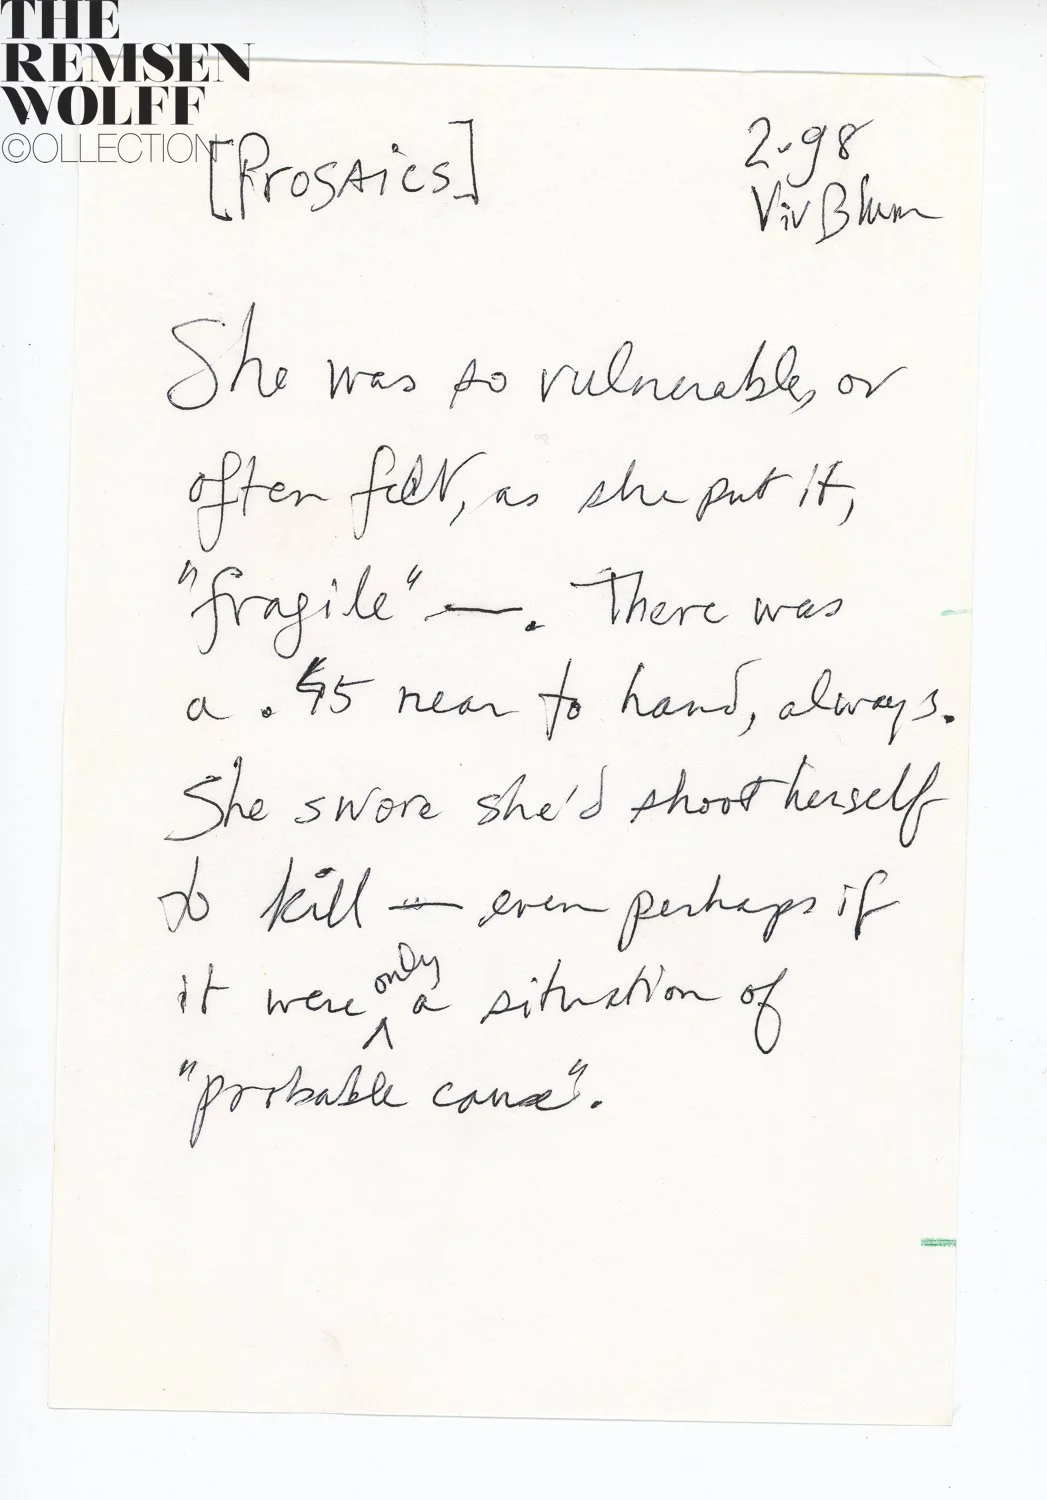 THE
REMSEN
WOLFF
©OLLECTION
[Prosaics]
2-98
Viv Blum
She was so vulnerable, or
often felt, as she put it,
"fragile" —. There was
a .45 near to hand, always.
She swore she'd shoot herself
to kill — even perhaps if
it were only a situation of
"probable cause".